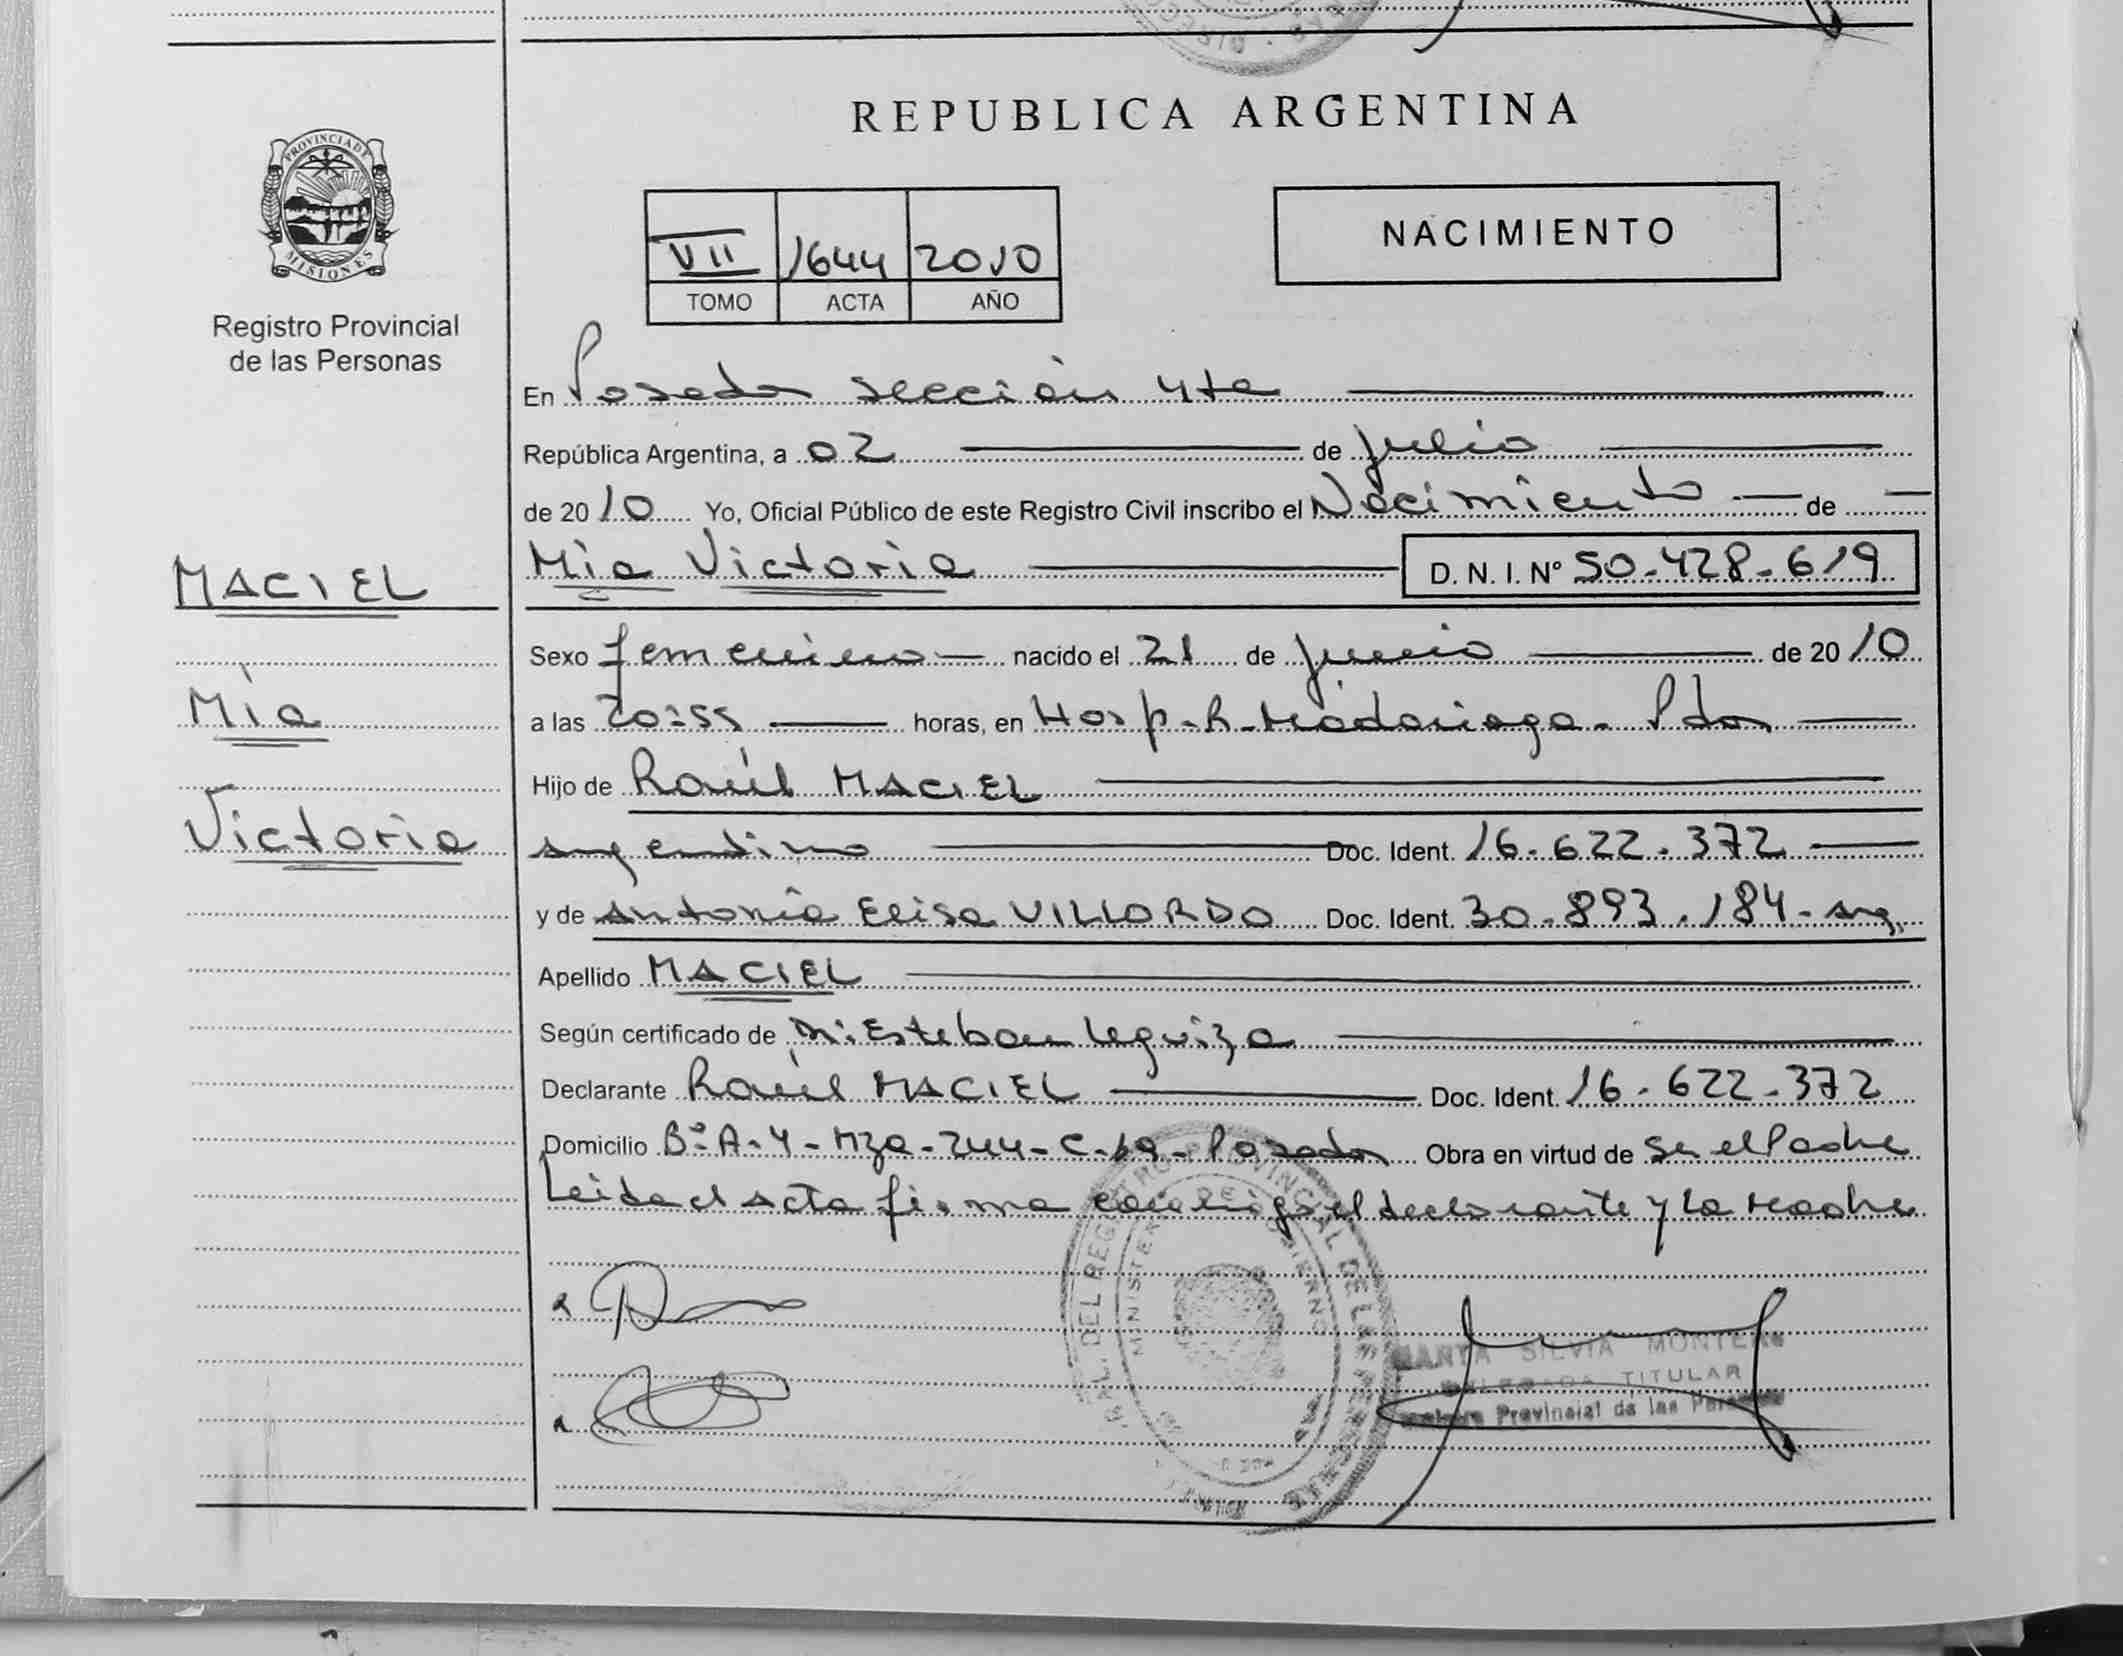 REPUBLICA ARGENTINA
PROVINCIA DE
MISIONES
Registro Provincial
de las Personas
VII 1644 2010
TOMO ACTA AÑO
NACIMIENTO
En Posadas sección 4ta
República Argentina, a 02 de julio
de 2010 Yo, Oficial Público de este Registro Civil inscribo el Nacimiento de
Mía Victoria D. N. I. Nº 50-428-619
MACIEL
Mía
Victoria
Sexo femenino nacido el 21 de junio de 2010
a las 20:55 horas, en Hosp-R-Madariaga- Pdas
Hijo de Raúl MACIEL
argentino Doc. Ident. 16-622-372
y de Antonia Elisa VILLORDO Doc. Ident. 30-893.184-arg.
Apellido MACIEL
Según certificado de Dr: Esteban Leguiza
Declarante Raúl MACIEL Doc. Ident. 16-622-372
Domicilio Bº A-4-Mza-244-C-19-Posadas Obra en virtud de ser el Padre
Leida el acta firma conmigo el declarante y la Madre
MINISTERIO DE GOBIERNO
MARTA SILVIA MONTERO
DELEGADA TITULAR
Provincial de las Personas